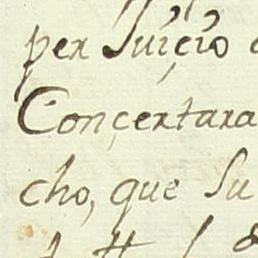 per Juiçio
Conçertara
cho, que Su